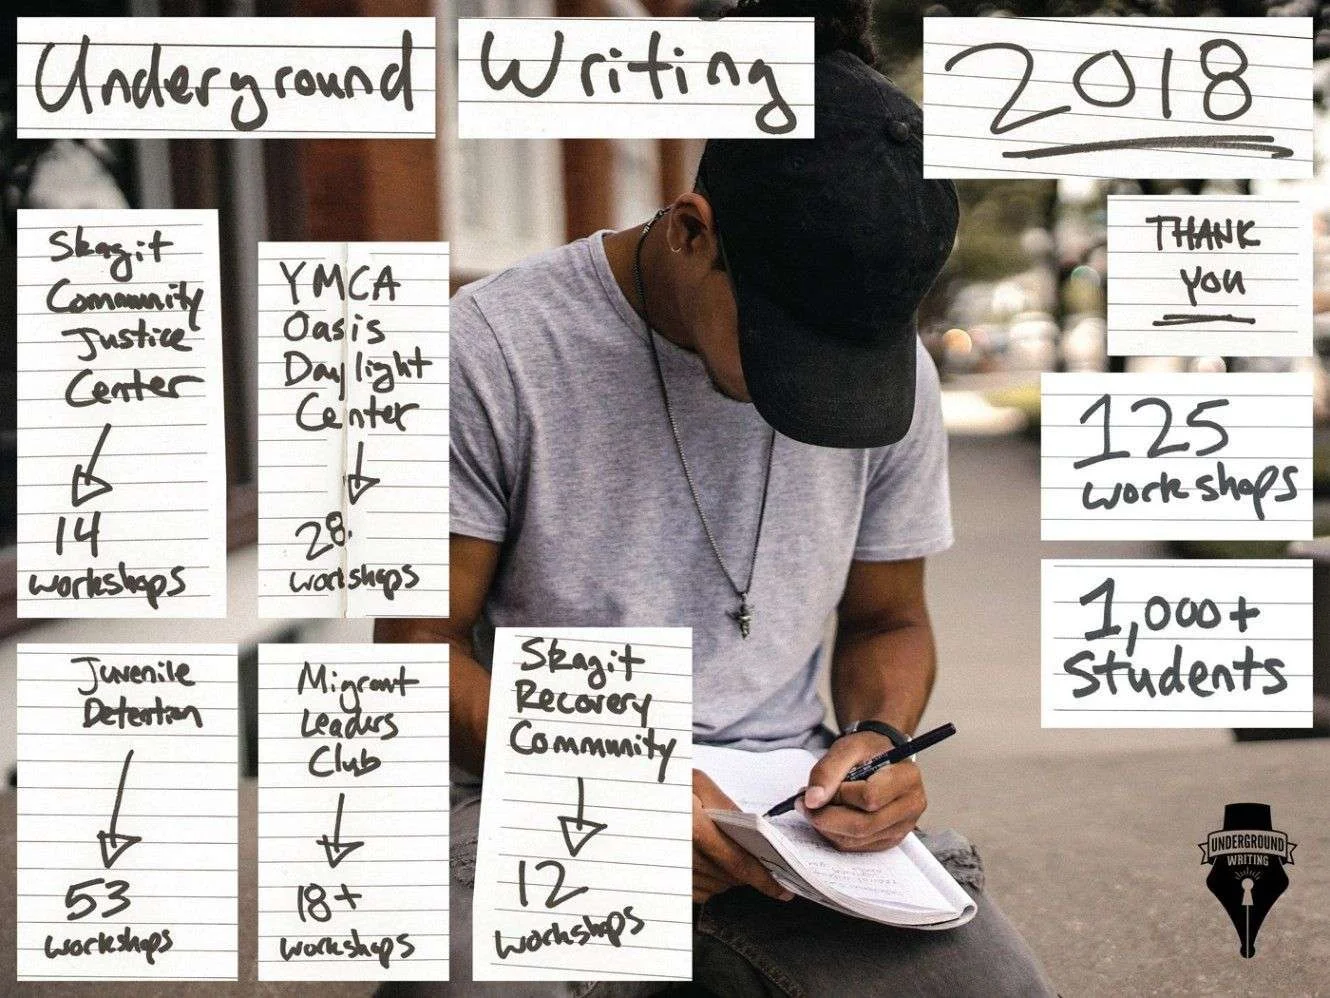 Underground Writing 2018
THANK
YOU
Skagit
Community
Justice
Center
14
workshops
YMCA
Oasis
Daylight
Center
28
workshops
125
workshops
1,000+
Students
Juvenile
Detention
53
workshops
Migrant
Leaders
Club
18+
workshops
Skagit
Recovery
Community
12
workshops
UNDERGROUND
WRITING